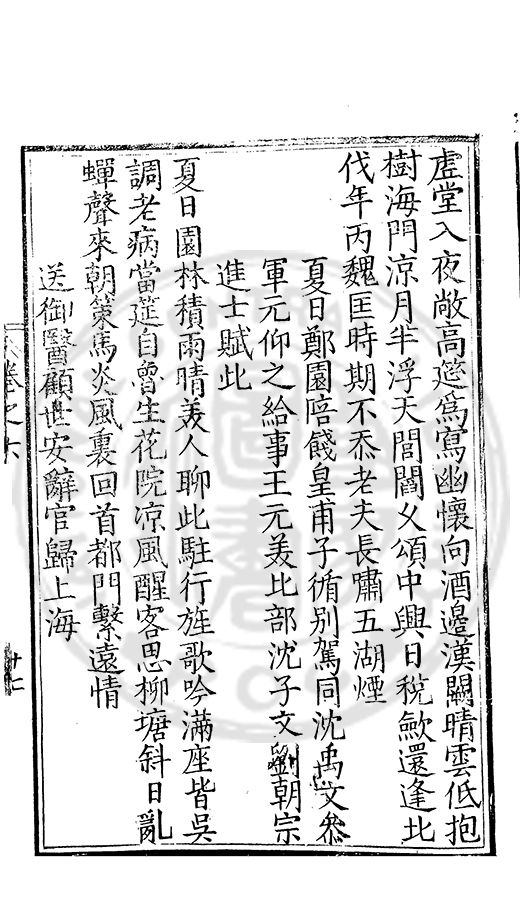 虛堂入夜敞高筵爲寫幽懷向酒邊漢闕晴雲低抱
樹海門涼月半浮天閭閻乆頌中興日稅歛還逢北
伐年丙魏匡時期不忝老夫長嘯五湖煙
夏日鄭園陪餞皇甫子循别駕同沈禹文叅
軍元仰之給事王元美比部沈子文劉朝宗
進士賦此
夏日園林積雨晴美人聊此駐行旌歌吟滿座皆吳
調老病當筵自魯生花院凉風醒客思柳塘斜日亂
蟬聲來朝策馬炎風裏回首都門繫遠情
送御醫顧世安辭官歸上海
卷之六
十七